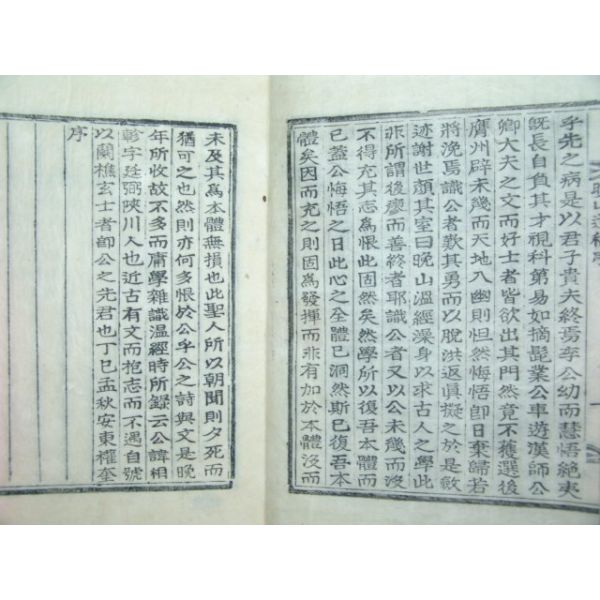 乎先之病是以君子貴夫終焉李公幼而慧悟絶夷
旣長自負其才視科第易如摘髭業公車遊漢師公
卿大夫之文而好士者皆欲出其門然竟不獲選後
膺州辟未幾而天地入幽則怛然悔悟卽日棄歸若
將浼焉識公者歎其勇而以脫洪返眞擬之於是歛
迹謝世顔其室曰晩山溫經澡身以求古人之學此
非所謂後瘳而善終者耶識公者又以公未幾而沒
不得充其志爲恨此固然矣然學所以復吾本體而
已蓋公悔悟之日此心之全體已洞然斯已復吾本
體矣因而充之則固爲發揮而非有加於本體沒而
未及其爲本體無損也此聖人所以朝聞則夕死而
猶可之也然則亦何多恨於公乎公之詩與文是晩
年所收故不多而庸學雜識溫經時所錄云公諱相
軫字廷弼陜川人也近古有文而抱志而不遇自號
以蘭樵玄士者卽公之先君也丁巳孟秋安東權奎
序